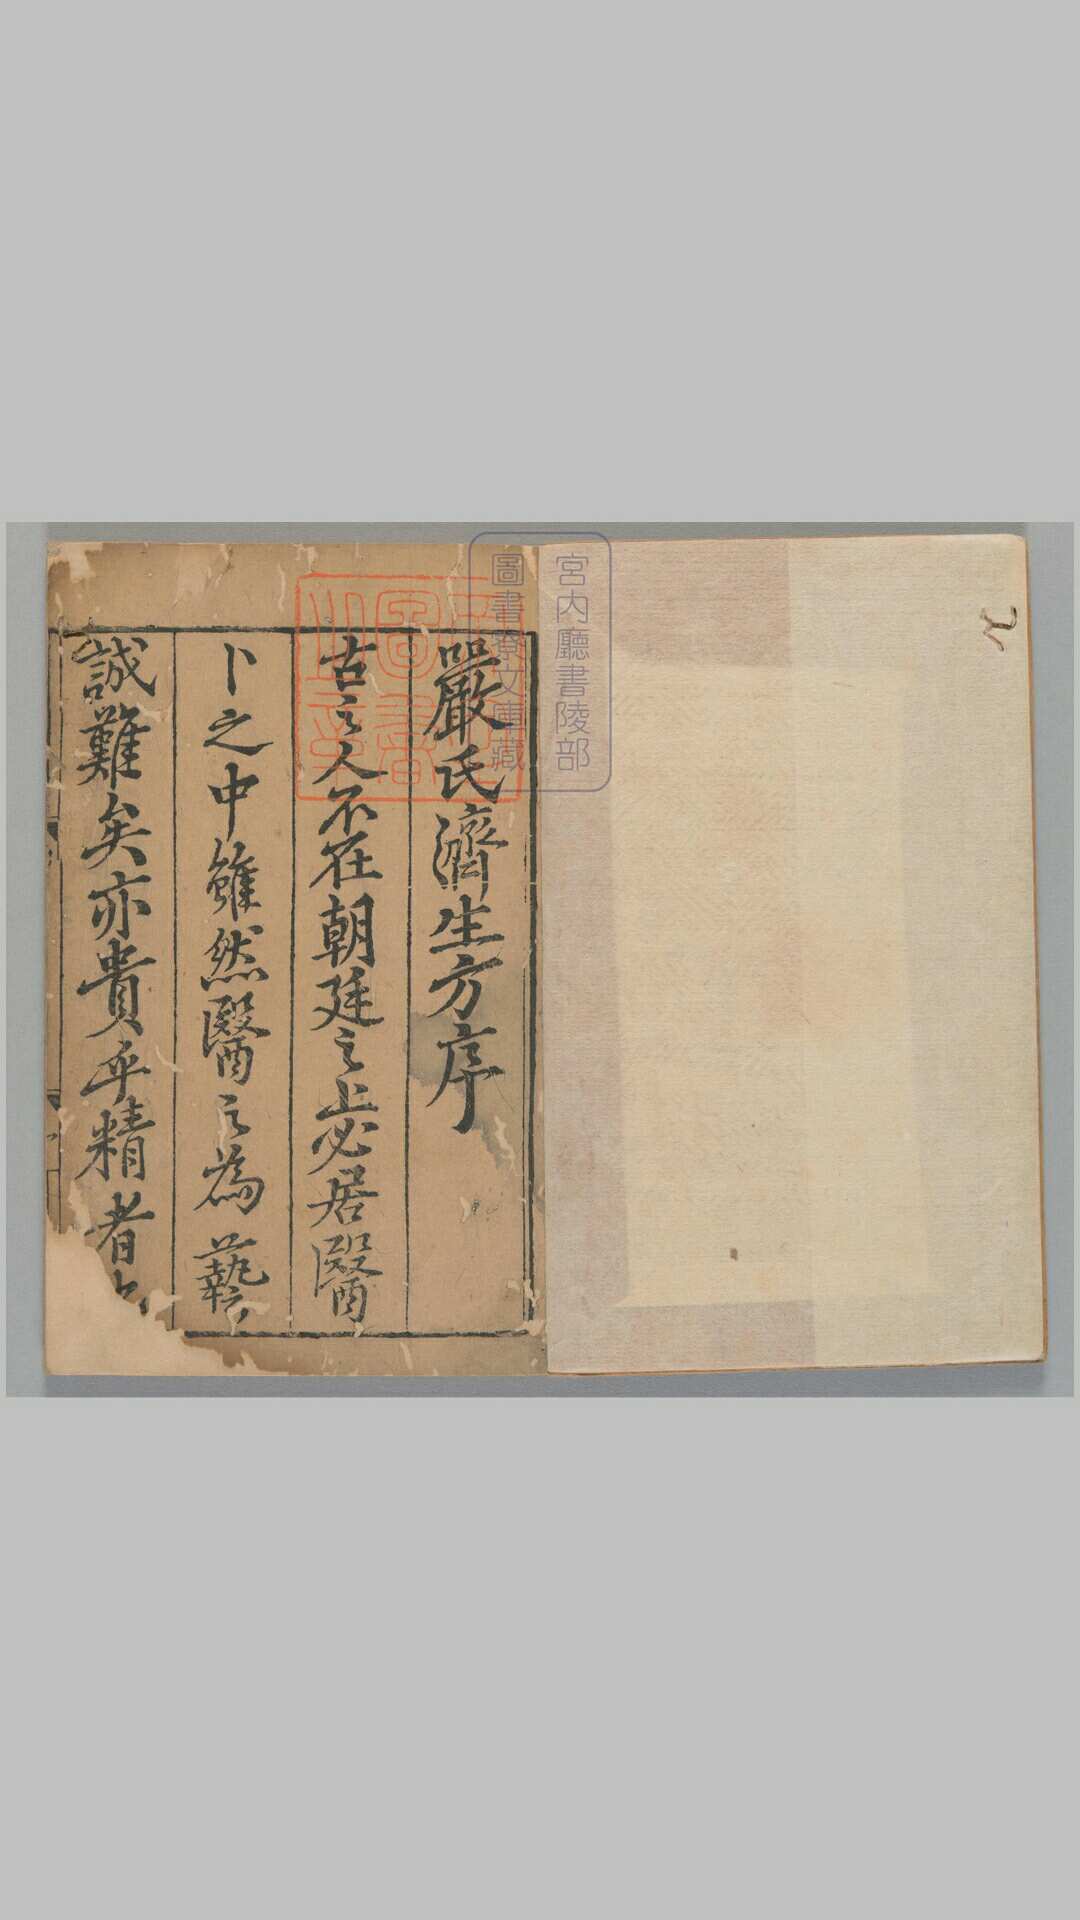 宮内廳書陵部
圖書寮文庫藏
嚴氏濟生方序
古之人不在朝廷之上必居醫
卜之中雖然醫之為藝
誠難矣亦貴乎精者